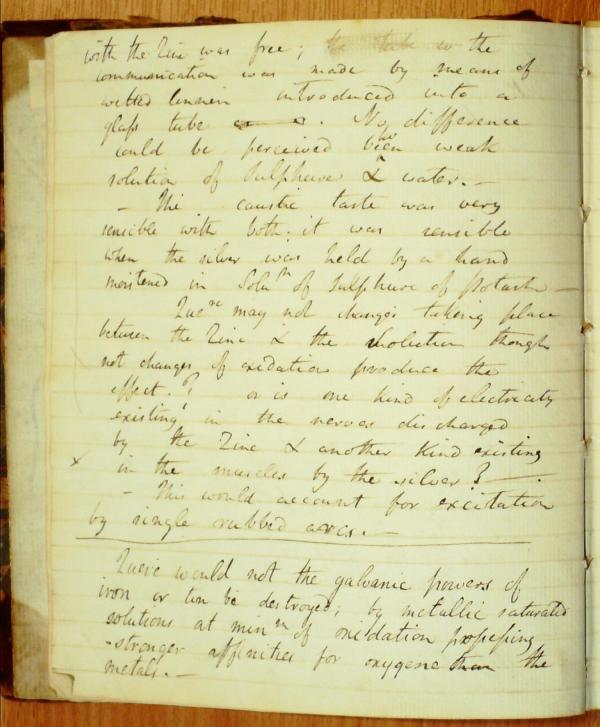 with the Zinc was free; the tube w the
communication was made by means of
wetted linnen introduced into a
glass tube. No difference
could be perceived between weak
solution of Sulphure & water. —
— The caustic taste was very
sensible with both; it was sensible
when the silver was held by a hand
moistened in Solun of Sulphure of Potash —
Quere may not changes taking place
between the Zinc & the solution though
not changes of oxidation produce the
effect.? or is one kind of electricity
existing in the nerves discharged
by the Zinc & another kind existing
x in the muscles by the silver? —.
— This would account for excitation
by single rubbed arcs. —
Quere would not the galvanic powers of
iron or tin be destroyed; by metallic saturated
solutions at minm of oxidation possessing
stronger affinities for oxygene than the
metals. —